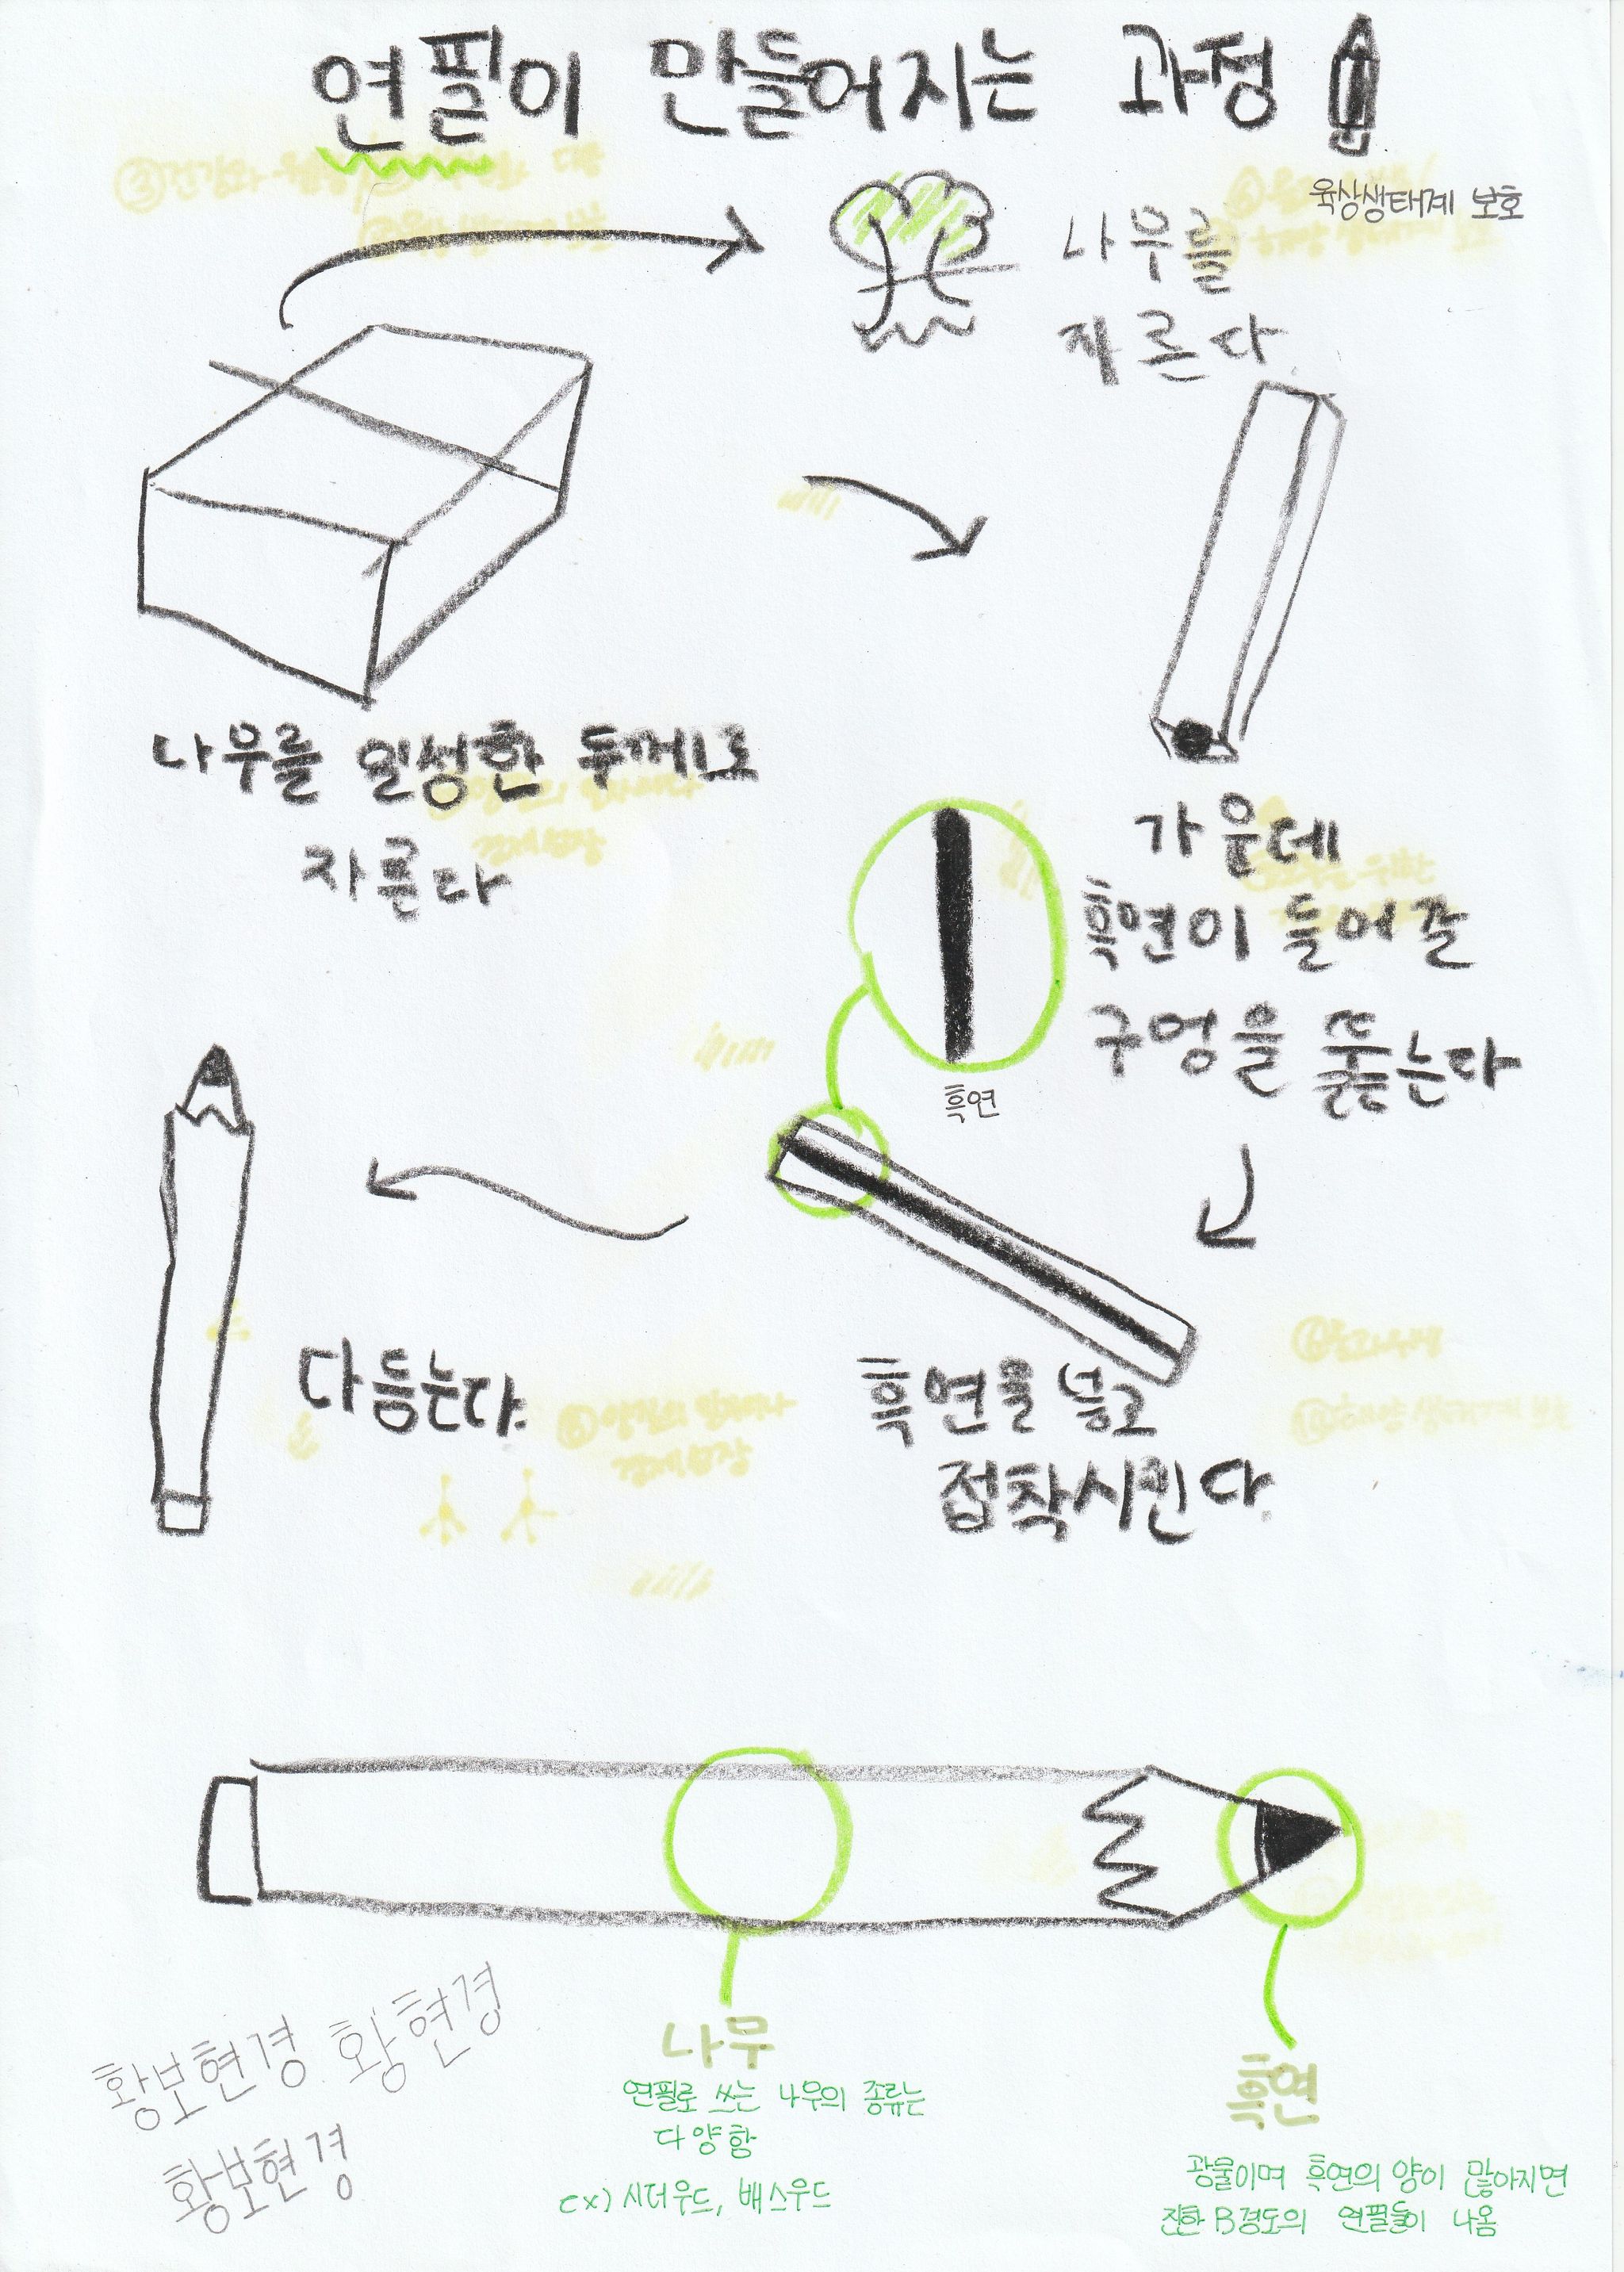 연필이 만들어지는 과정
육상생태계 보호
나무를
자른다.
나무를 일성한 두께로
자른다
가운데
흑연이 들어갈
구멍을 뚫는다
흑연
흑연을 넣고
접착시킨다.
다듬는다.
나무
연필로 쓰는 나무의 종류는
다양함
ex) 시더우드, 배스우드
흑연
광물이며 흑연의 양이 많아지면
진한 B경도의 연필들이 나옴
황보현경 황현경
황보현경